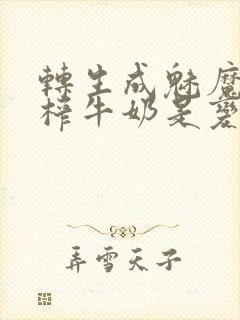 轉生成魅魔
榨牛奶是變
弄雪天子